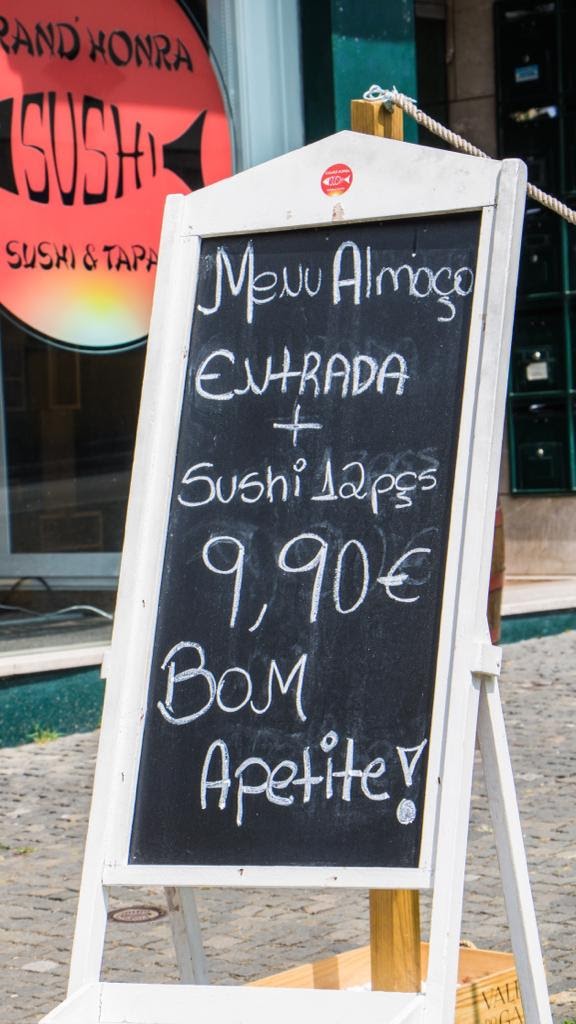 RAND'HONRA
SUSHI
SUSHI & TAPA
Menu Almoço
ENtRADA
+
Sushi 12pçs
9,90€
BOM
Apetite!
VAL